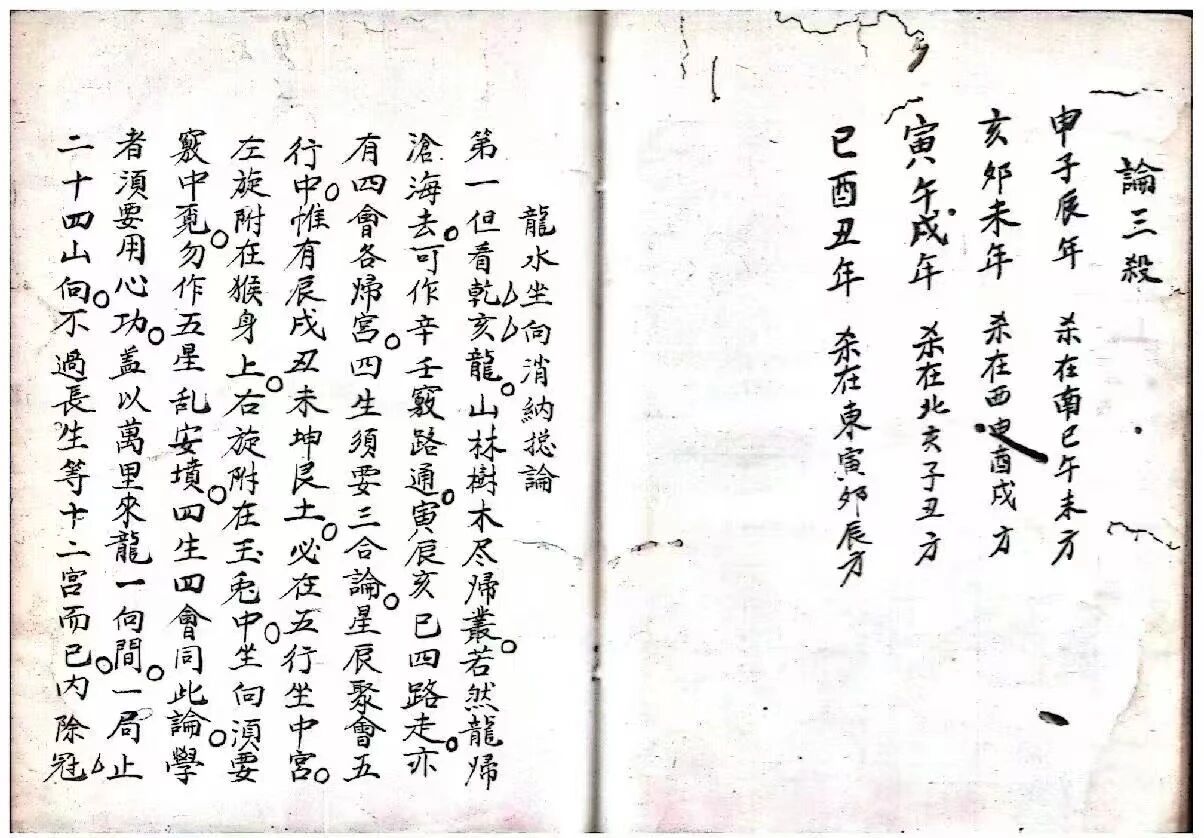 論三殺
申子辰年 杀在南巳午未方
亥卯未年 杀在西申酉戌方
寅午戌年 杀在北亥子丑方
巳酉丑年 杀在東寅卯辰方
龍水坐向消納捴論
第一但看乾亥龍。山林樹木尽帰叢。若然龍帰
滄海去。可作辛壬竅路通。寅辰亥巳四路走。亦
有四會各帰宮。四生須要三合論。星辰聚會五
行中。惟有辰戌丑未坤艮土。必在五行坐中宮。
左旋附在猴身上。右旋附在玉兎中。坐向須要
竅中覓。勿作五星乱安墳。四生四會同此論。學
者須要用心功。盖以萬里來龍一向間。一局止
二十四山向。不過長生等十二宮而已。内除冠